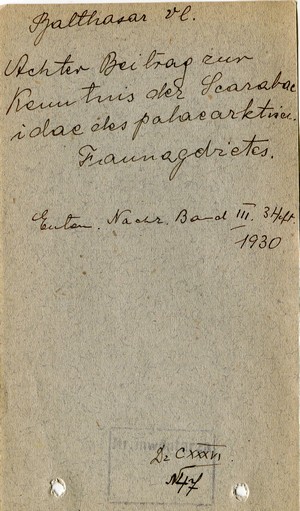 Balthasar Vl.
Achter Beitrag zur
Kenntnis der Scarabae
idae des palaearktisc.
Faunagebietes.
Entom. Nachr. Band III. 3 Heft.
1930
Dr CXXXVI
N47